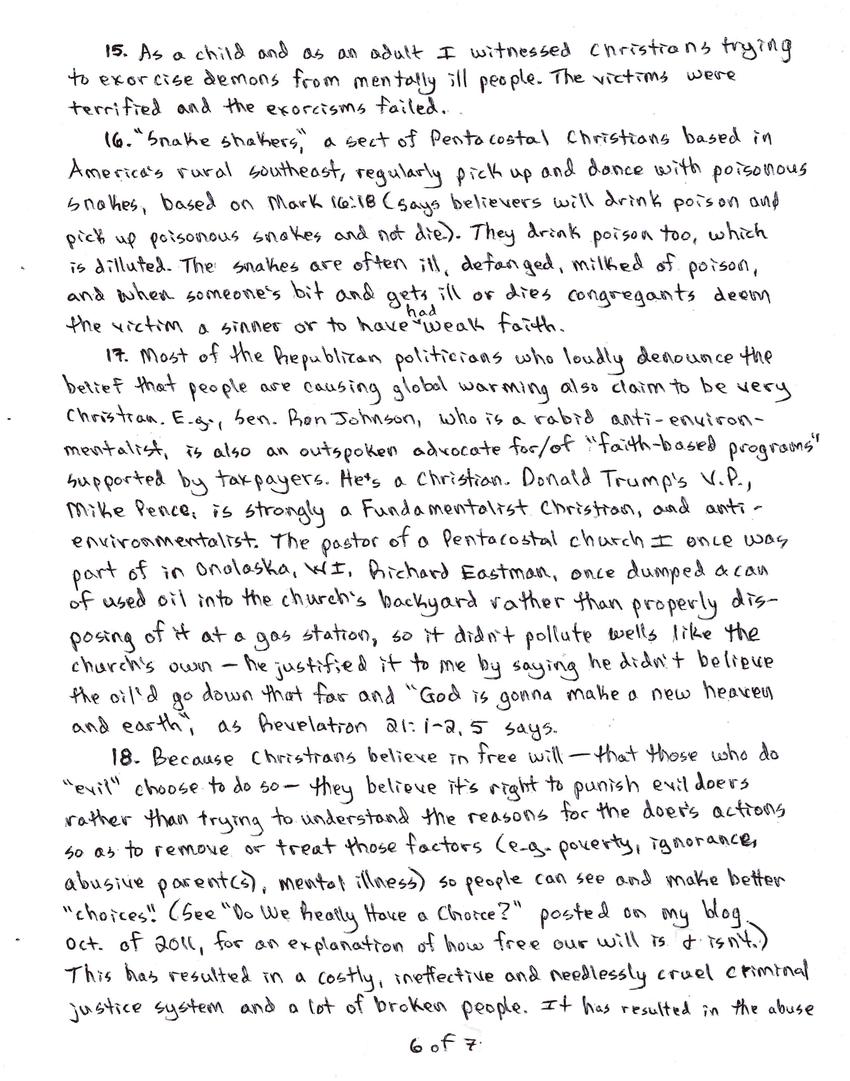 15. As a child and as an adult I witnessed Christians trying
to exorcise demons from mentally ill people. The victims were
terrified and the exorcisms failed.
16. "Snake shakers," a sect of Pentacostal Christians based in
America's rural southeast, regularly pick up and dance with poisonous
snakes, based on Mark 16:18 (says believers will drink poison and
pick up poisonous snakes and not die). They drink poison too, which
is dilluted. The snakes are often ill, defanged, milked of poison,
and when someone's bit and gets ill or dies congregants deem
the victim a sinner or to have had weak faith.
17. Most of the Republican politicians who loudly denounce the
belief that people are causing global warming also claim to be very
Christian. E.g., Sen. Ron Johnson, who is a rabid anti-environ-
mentalist, is also an outspoken advocate for/of "faith-based programs"
supported by taxpayers. He's a Christian. Donald Trump's V.P.,
Mike Pence, is strongly a Fundamentalist Christian, and anti-
environmentalist. The pastor of a Pentacostal church I once was
part of in Onalaska, WI, Richard Eastman, once dumped a can
of used oil into the church's backyard rather than properly dis-
posing of it at a gas station, so it didn't pollute wells like the
church's own – he justified it to me by saying he didn't believe
the oil'd go down that far and "God is gonna make a new heaven
and earth", as Revelation 21:1-2, 5 says.
18. Because Christians believe in free will – that those who do
"evil" choose to do so – they believe it's right to punish evil doers
rather than trying to understand the reasons for the doer's actions
so as to remove or treat those factors (e.g. poverty, ignorance,
abusive parent(s), mental illness) so people can see and make better
"choices". (See "Do We Really Have a Choice?" posted on my blog
Oct. of 2011, for an explanation of how free our will is & isn't.)
This has resulted in a costly, ineffective and needlessly cruel criminal
justice system and a lot of broken people. It has resulted in the abuse
6 of 7